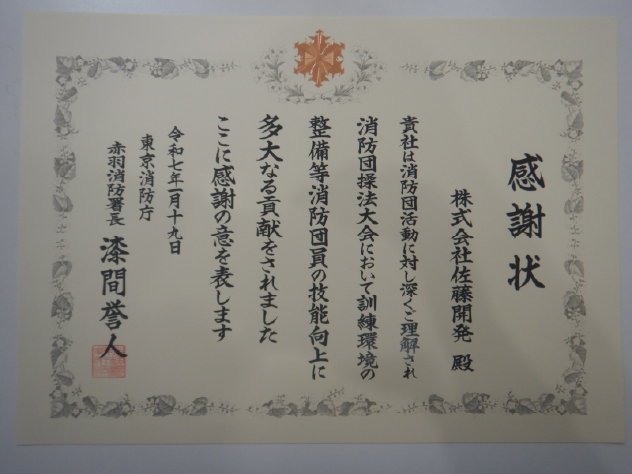 感謝状
株式会社佐藤開発 殿
貴社は消防団活動に対し深くご理解され
消防団操法大会において訓練環境の
整備等消防団員の技能向上に
多大なる貢献をされました
ここに感謝の意を表します
令和七年一月十九日
東京消防庁
赤羽消防署長 漆間誉人